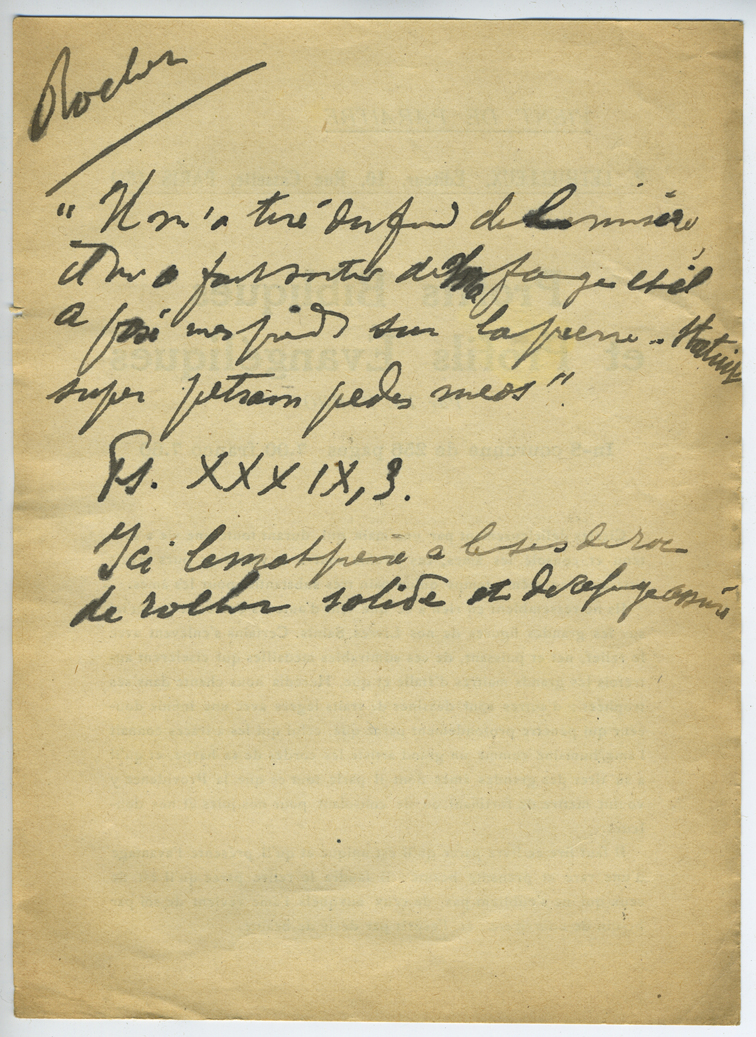 Rocher
"Il m'a tiré du fond de la misère,
il m'a fait sortir de la fange et il
a posé mes pieds sur la pierre. Statuit
super petram pedes meos"
Ps. XXXIX, 3.
Ici le mot pierre a le sens de roc
de rocher solide et de refuge assuré